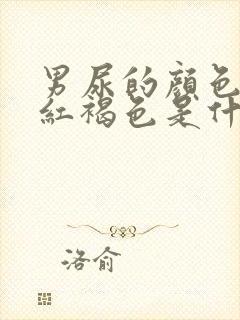 男尿的顏色
紅褐色是什
洛俞